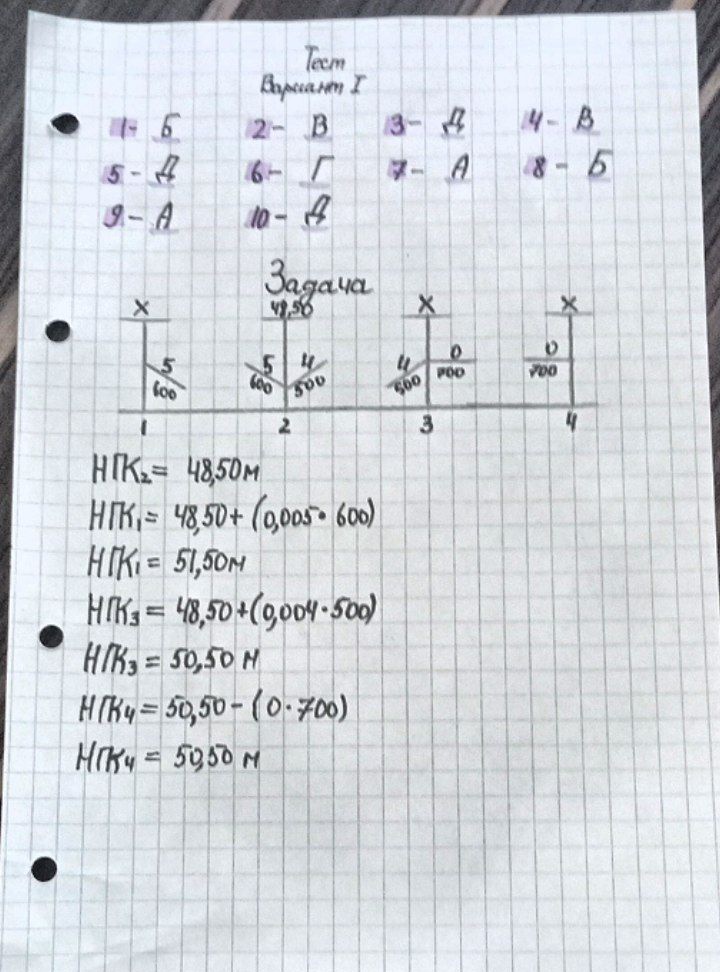 Тест
Вариант I
1- Б 2- В 3- Д 4- В
5- Д 6- Г 7- А 8- Б
9- А 10- Д
Задача
X 48,50 X X
5 5 4 4 0 0
600 600 500 500 700 700
1 2 3 4
НГК₂= 48,50м
НГК₁= 48,50+(0,005·600)
НГК₁= 51,50м
НГК₃= 48,50+(0,004·500)
НГК₃= 50,50 м
НГК₄= 50,50-(0·700)
НГК₄= 50,50 м